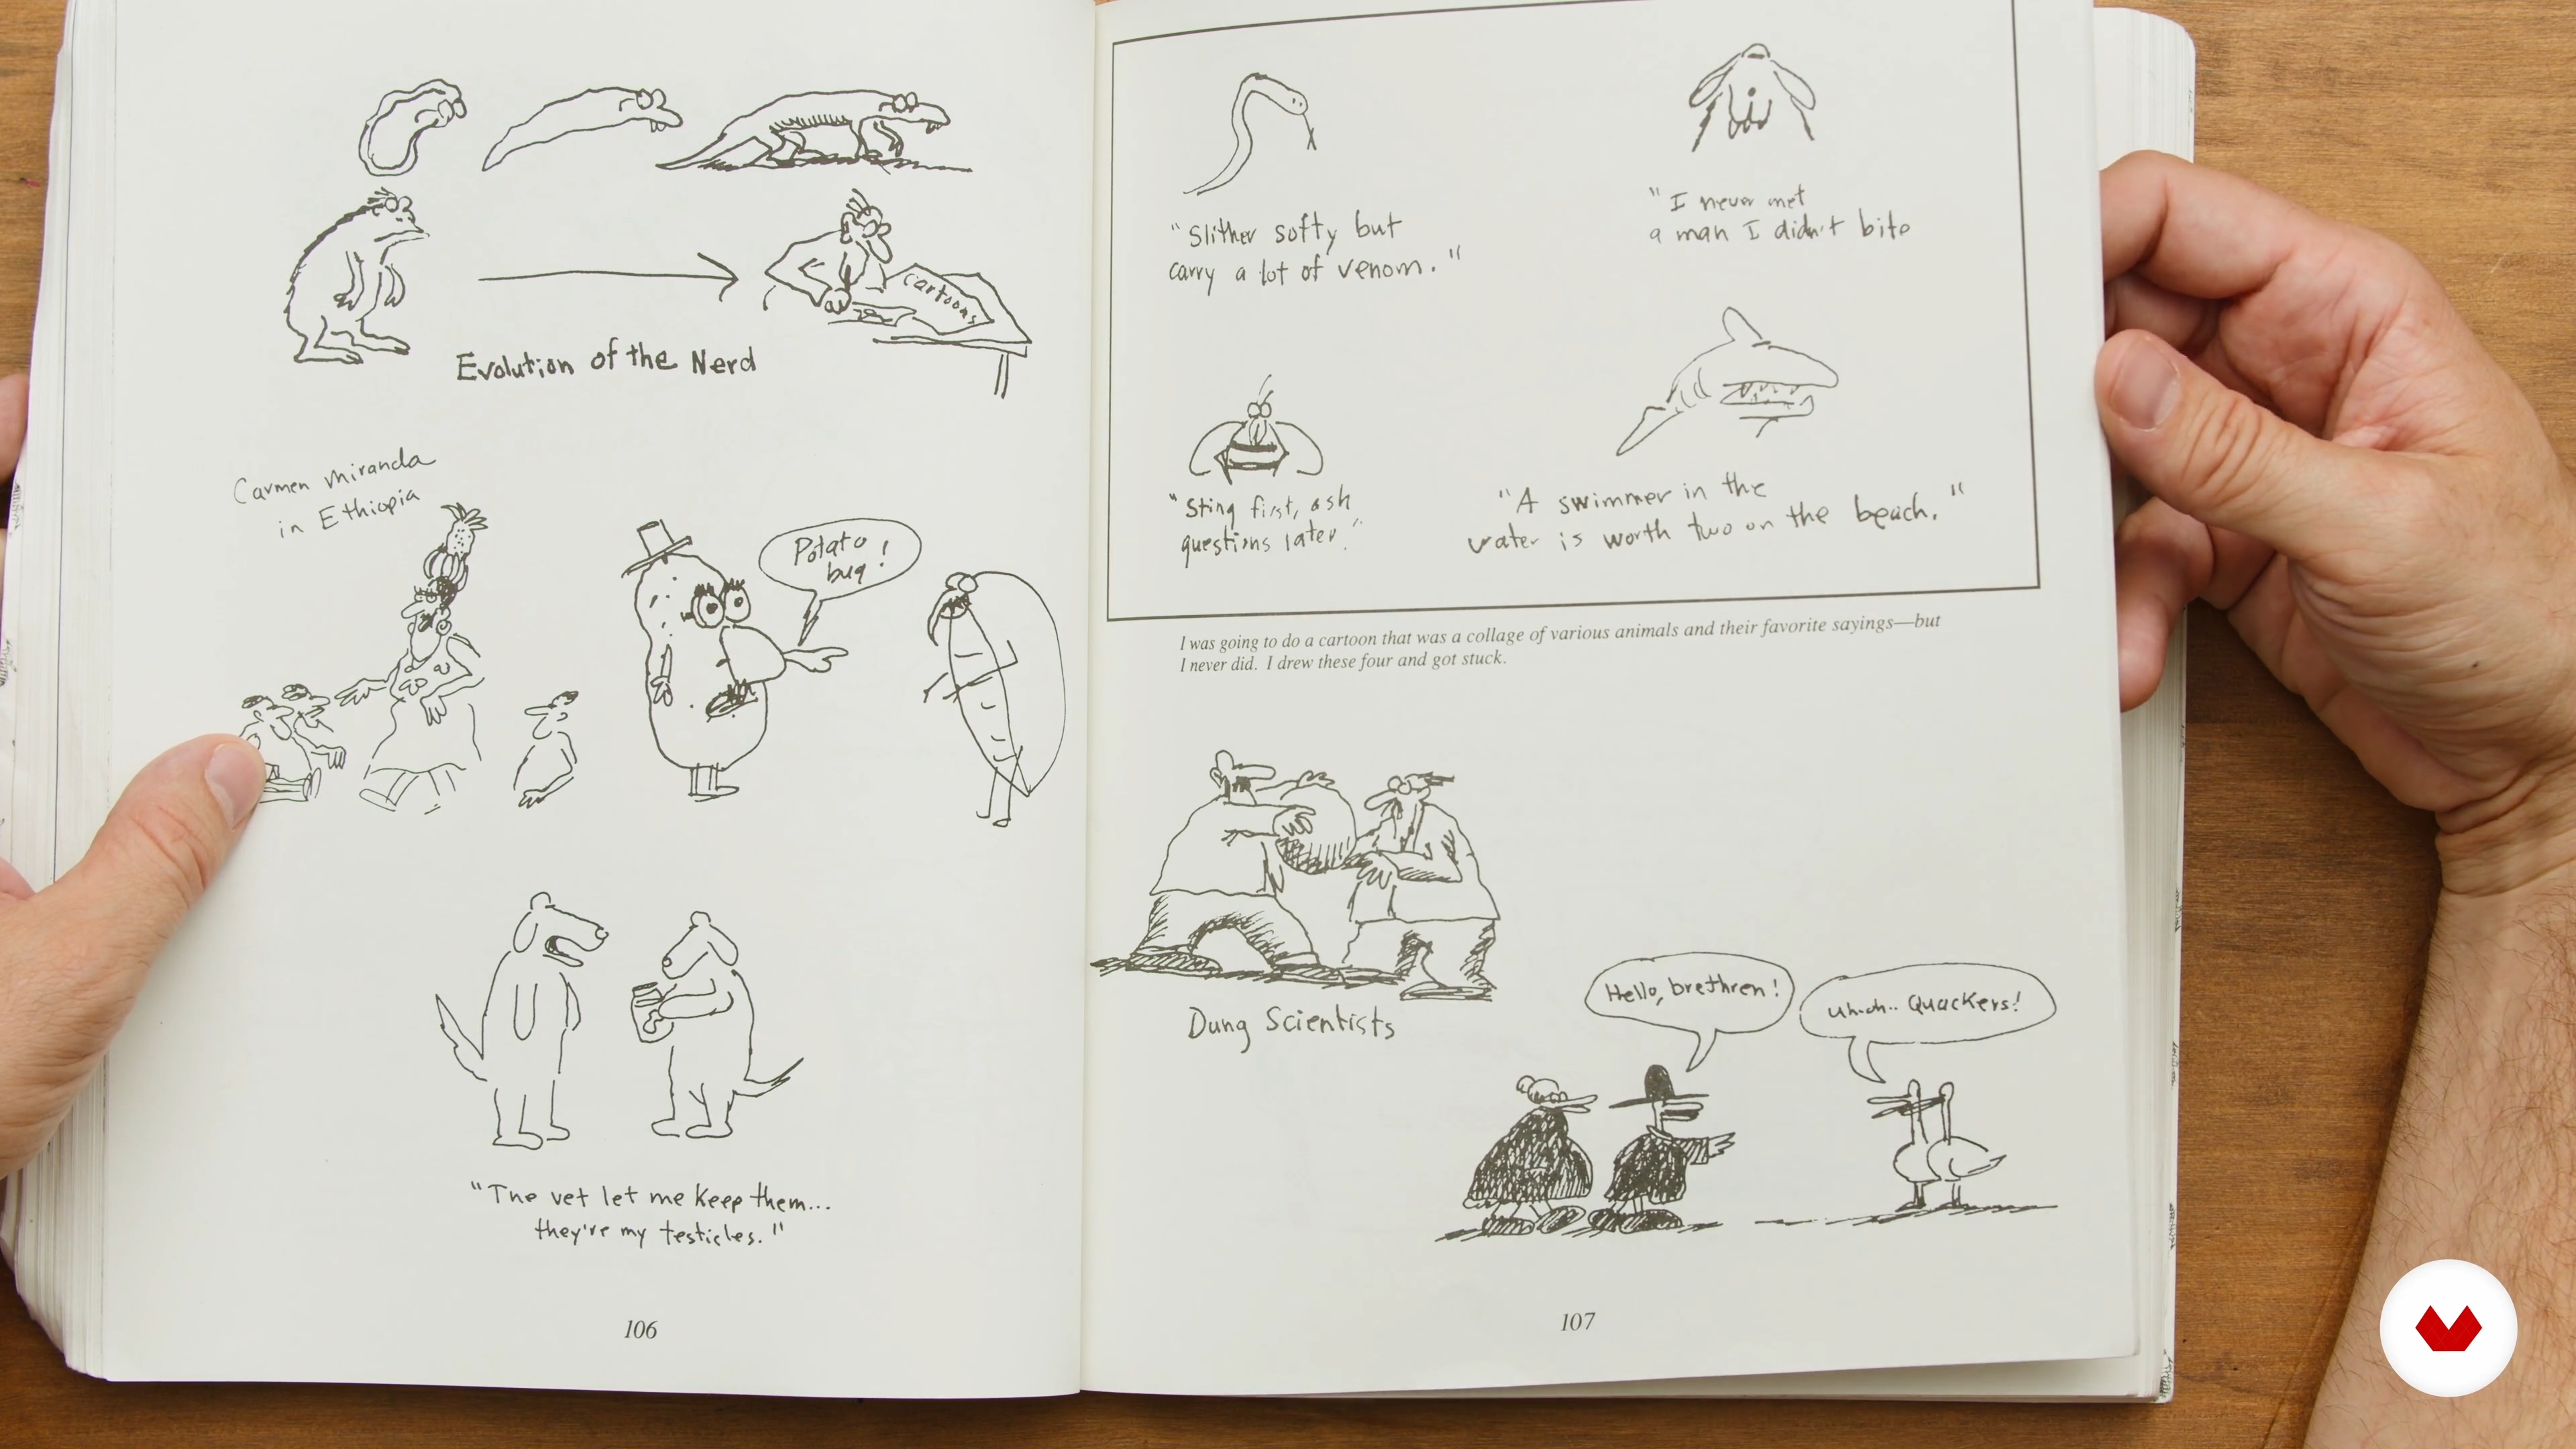 Cartoons
Evolution of the Nerd
Carmen Miranda
in Ethiopia
Potato
bug!
"The vet let me keep them...
they're my testicles."
106
"Slither softy but
carry a lot of venom."
"I never met
a man I didn't bite
"Sting first, ask
questions later."
"A swimmer in the
water is worth two on the beach."
I was going to do a cartoon that was a collage of various animals and their favorite sayings—but
I never did. I drew these four and got stuck.
Dung Scientists
Hello, brethren!
Uh-oh.. Quackers!
107